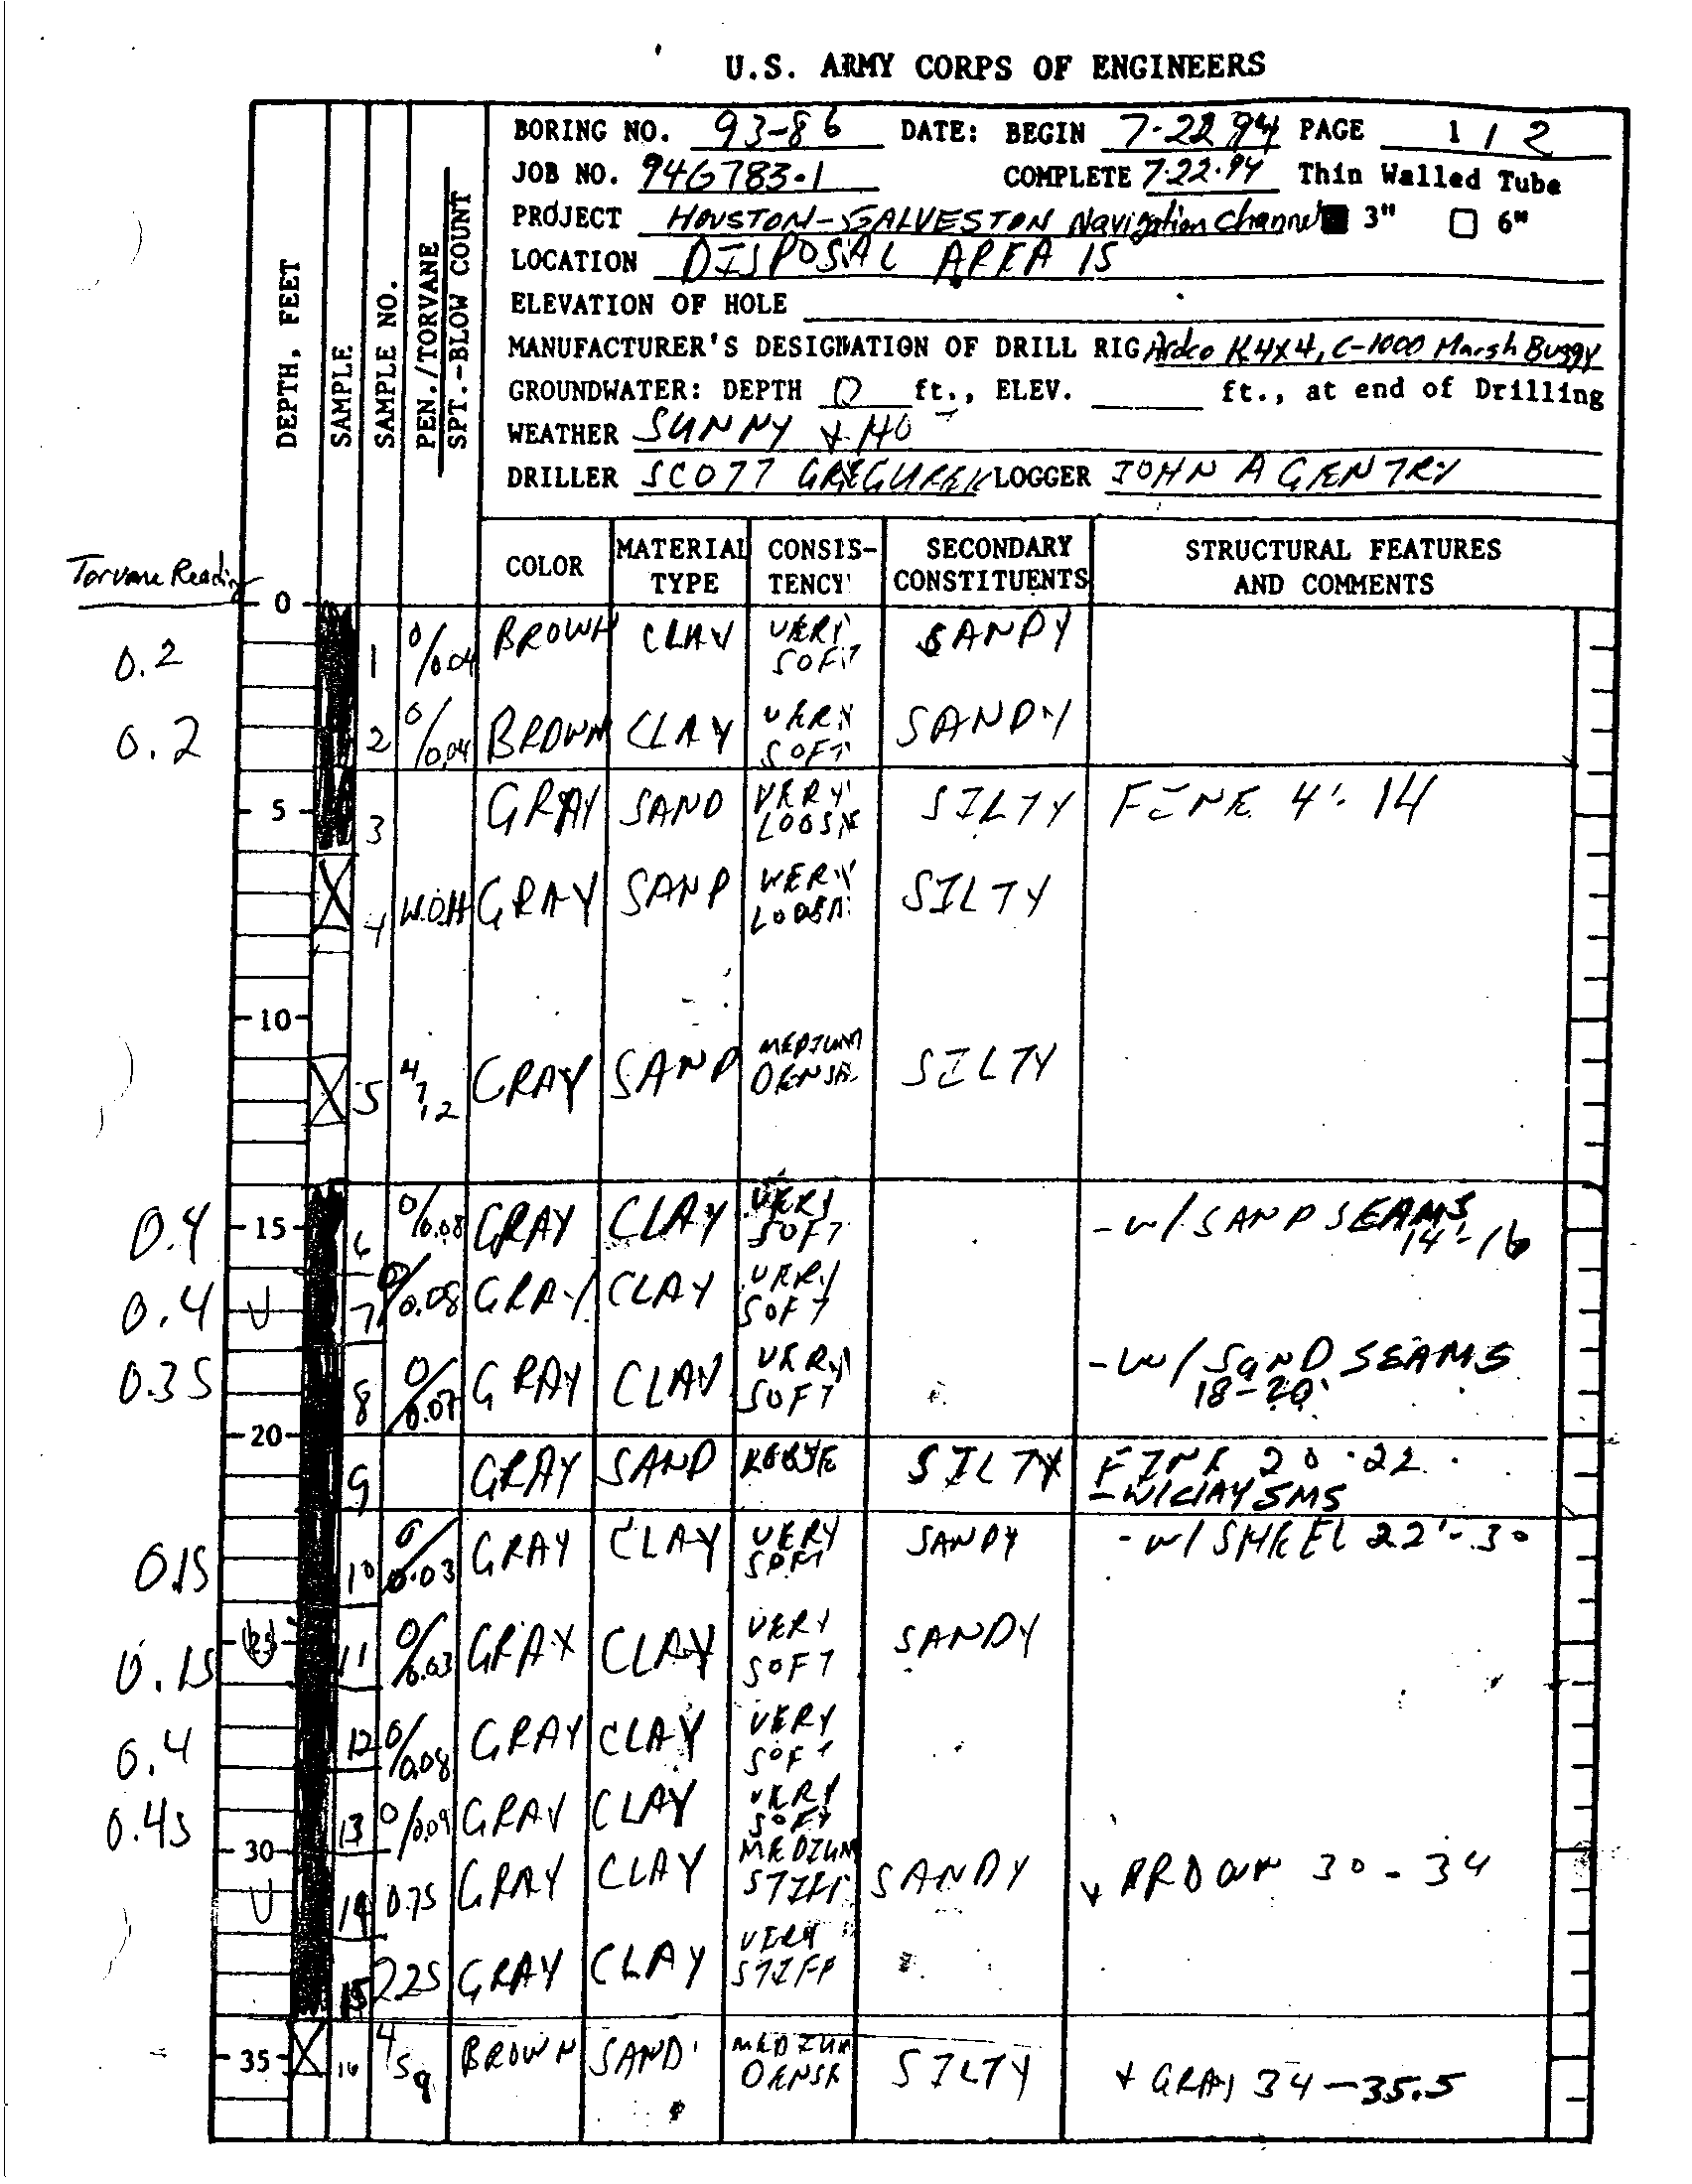 U.S. ARMY CORPS OF ENGINEERS
BORING NO. 93-86 DATE: BEGIN 7-22 94 PAGE 1 / 2
JOB NO. 94G783-1 COMPLETE 7-22-94 Thin Walled Tube
PROJECT HOUSTON-GALVESTON Navigation Channel 3" 6"
LOCATION DISPOSAL AREA 15
ELEVATION OF HOLE
MANUFACTURER'S DESIGNATION OF DRILL RIG Ardco K4X4, C-1000 Marsh Buggy
GROUNDWATER: DEPTH 0 ft., ELEV. ft., at end of Drilling
WEATHER SUNNY + HO
DRILLER SCOTT GREGUREK LOGGER JOHN A GENTRY
DEPTH, FEET
SAMPLE
SAMPLE NO.
PEN./TORVANE
SPT.-BLOW COUNT
COLOR MATERIAL TYPE CONSIS-TENCY SECONDARY CONSTITUENTS STRUCTURAL FEATURES AND COMMENTS
Torvane Reading
0
0.2 1 0/0.04 BROWN CLAY VERY SOFT SANDY
0.2 2 0/0.04 BROWN CLAY VERY SOFT SANDY
5 3 GRAY SAND VERY LOOSE SILTY FINE 4'-14
4 W.O.H GRAY SAND VERY LOOSE SILTY
10
5 4 7 12 GRAY SAND MEDIUM DENSE SILTY
0.4 15 6 0/0.08 GRAY CLAY VERY SOFT -W/ SAND SEAMS 14'-16
0.4 7 0/0.08 GRAY CLAY VERY SOFT
0.35 8 0/0.07 GRAY CLAY VERY SOFT -W/ SAND SEAMS 18-20'
20
9 GRAY SAND LOOSE SILTY FINE 20-22
-W/CLAY SMS
0.15 10 0/0.03 GRAY CLAY VERY SOFT SANDY -W/ SHEEL 22'-30
0.15 25 11 0/0.03 GRAY CLAY VERY SOFT SANDY
0.4 12 0/0.08 GRAY CLAY VERY SOFT
0.45 13 0/0.09 GRAY CLAY VERY SOFT
30
14 0.75 GRAY CLAY MEDIUM STIFF SANDY + BROWN 30-34
15 2.25 GRAY CLAY VERY STIFF
35 16 4 5 9 BROWN SAND MEDIUM DENSE SILTY + GRAY 34-35.5